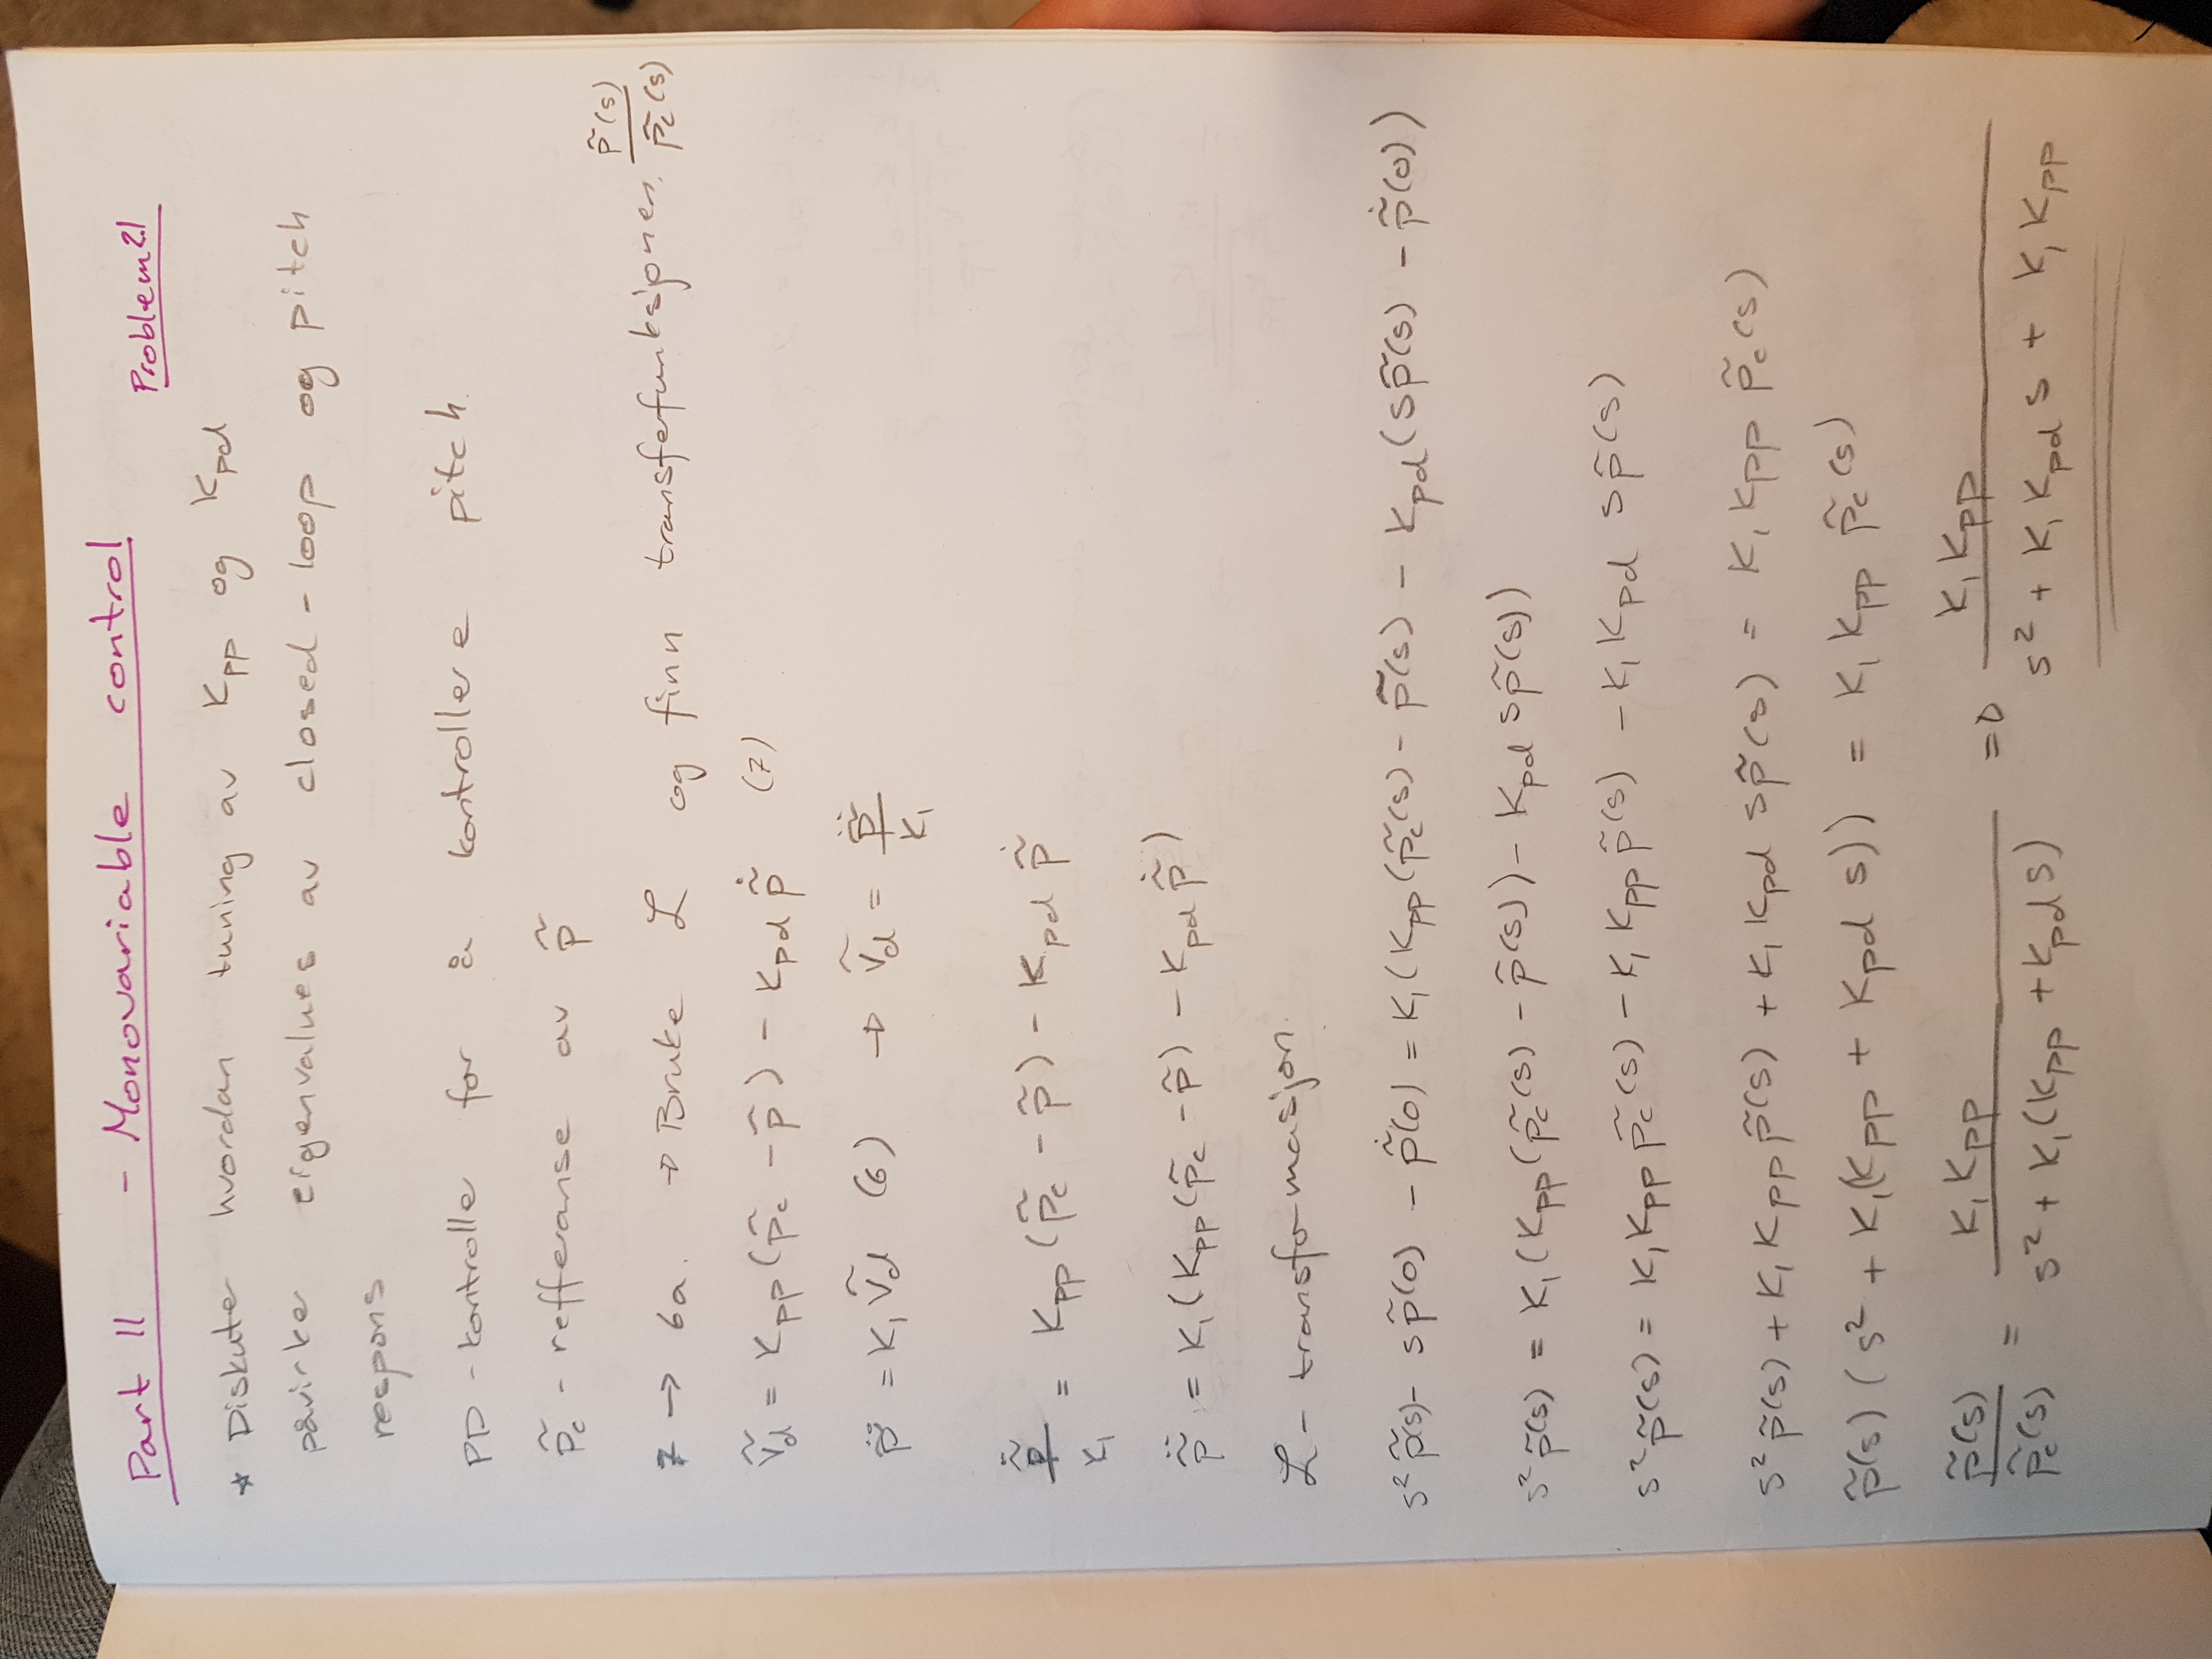 Part II - Monovariable control
Problem 2.1
* Diskuter hvordan tuning av Kpp og Kpd
påvirker eigenvalues av closed-loop og pitch
respons
PD-kontrolle for å kontrollere pitch.
p̃c - refferanse av p̃
7 → 6a. → Bruke ℒ og finn transfefunksjonen. p̃(s)/p̃c(s)
Ṽd = Kpp(p̃c - p̃) - Kpd p̃̇ (7)
p̃̈ = K₁Ṽd (6) → Ṽd = p̃̈/K₁
p̃̈/K₁ = Kpp(p̃c - p̃) - Kpd p̃̇
p̃̈ = K₁(Kpp(p̃c - p̃) - Kpd p̃̇)
ℒ - transformasjon.
s² p̃(s) - sp̃(0) - p̃̇(0) = K₁(Kpp(p̃c(s) - p̃(s) - Kpd(sp̃(s) - p̃̇(0))
s² p̃(s) = K₁(Kpp(p̃c(s) - p̃(s)) - Kpd sp̃(s))
s² p̃(s) = K₁Kpp p̃c(s) - K₁Kpp p̃(s) - K₁Kpd sp̃(s)
s² p̃(s) + K₁Kpp p̃(s) + K₁Kpd sp̃(s) = K₁Kpp p̃c(s)
p̃(s) (s² + K₁(Kpp + Kpd s)) = K₁Kpp p̃c(s)
p̃(s)/p̃c(s) = K₁Kpp/(s² + K₁(Kpp + Kpd s)) ⇒ K₁Kpp/(s² + K₁Kpd s + K₁Kpp)